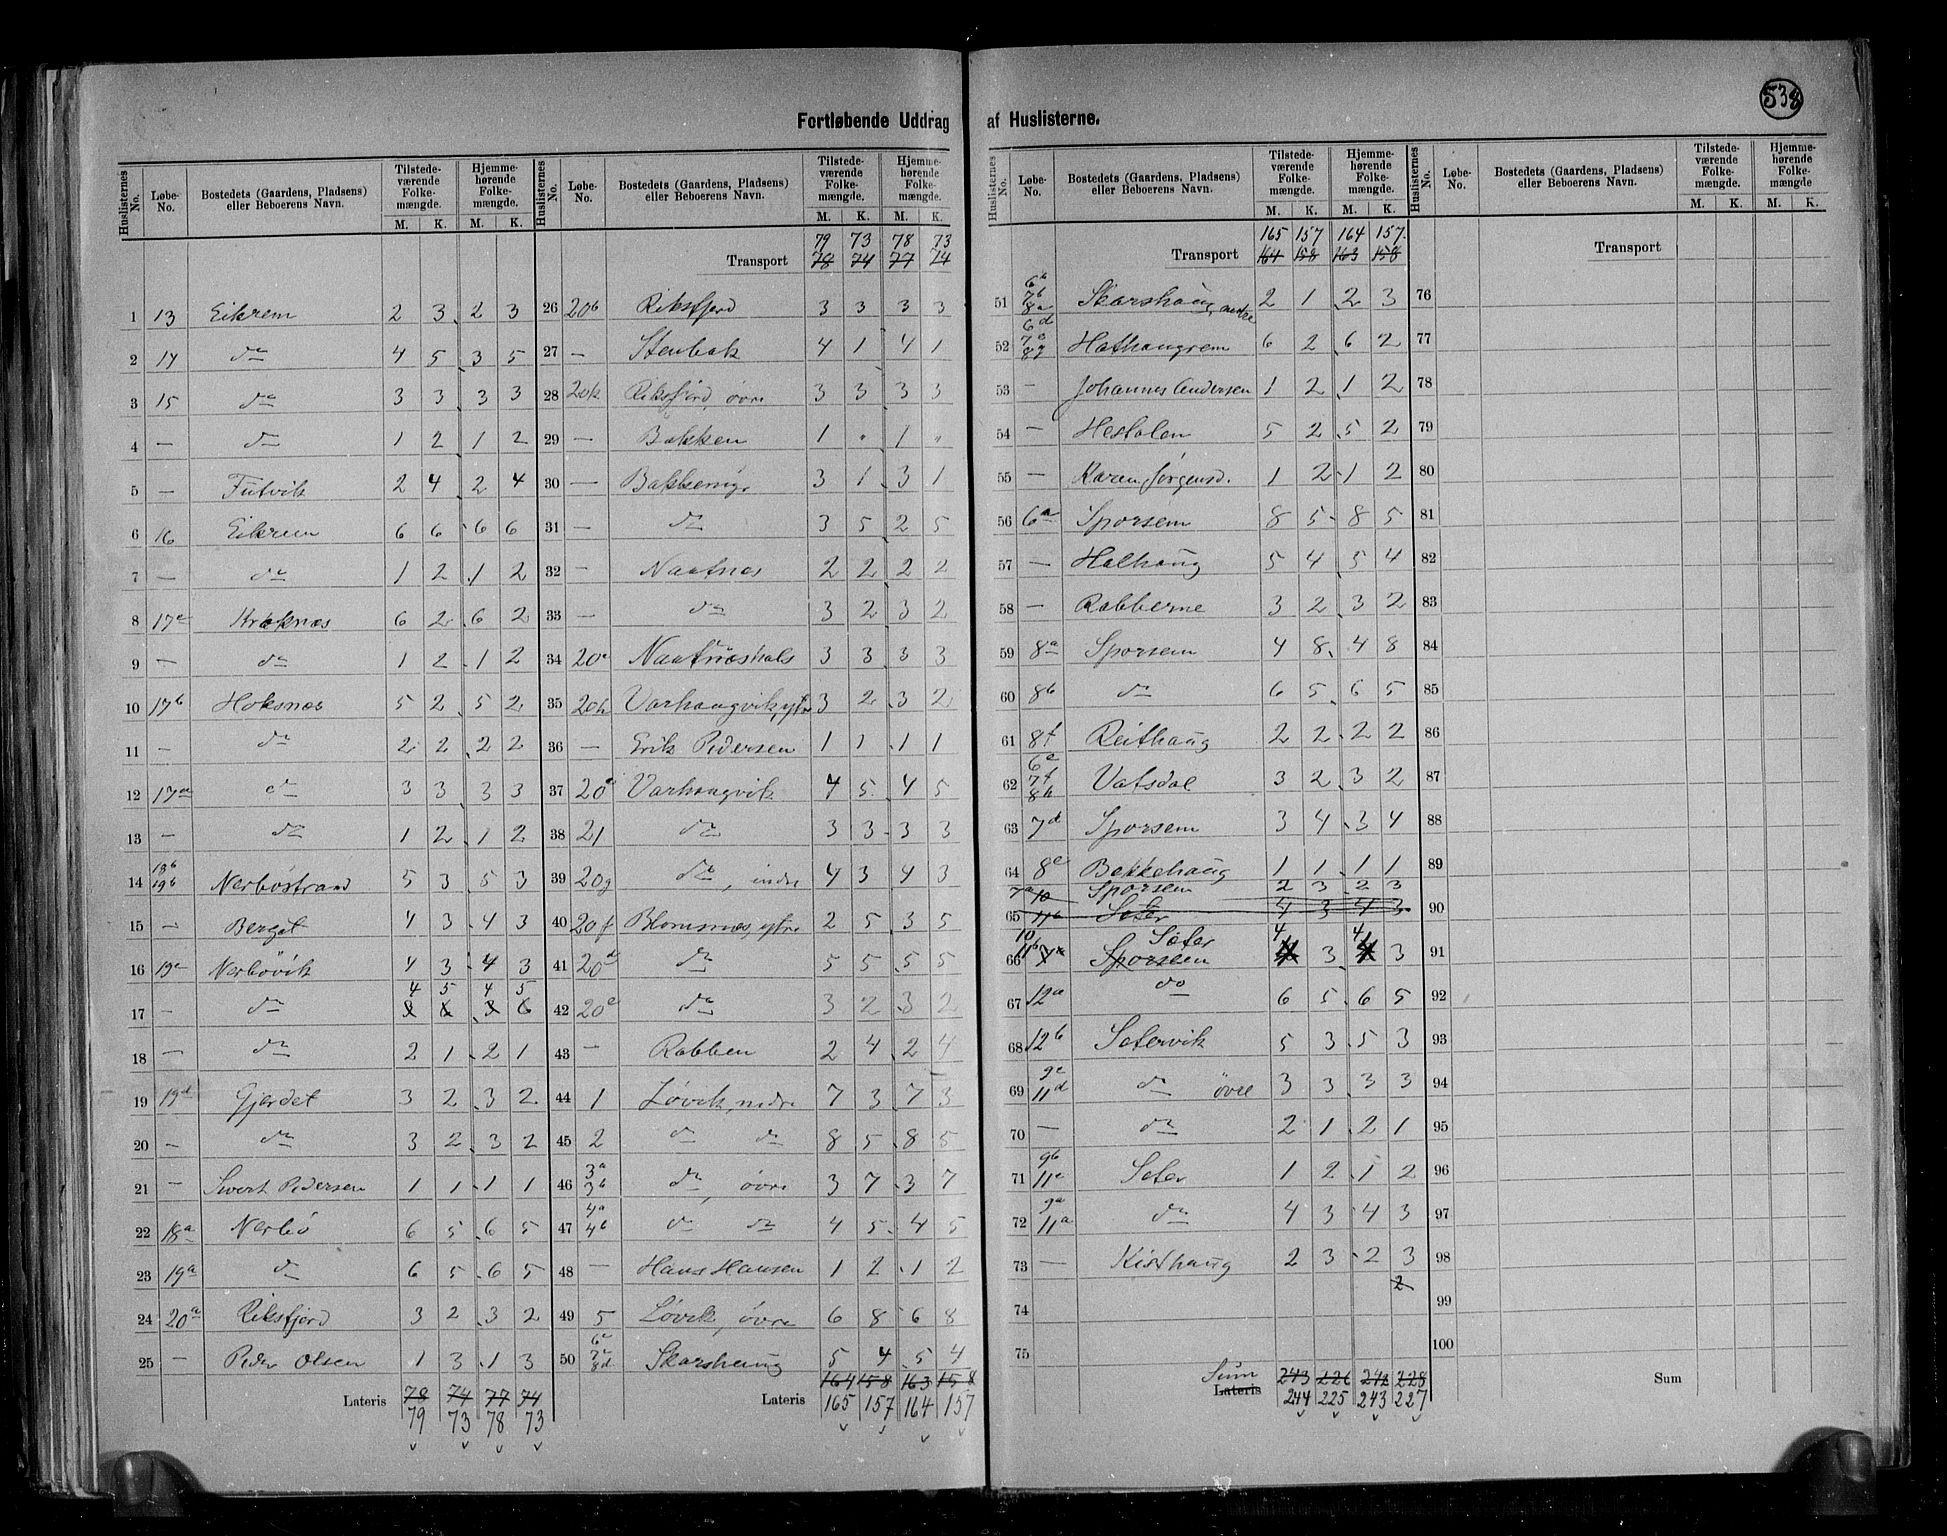 538
Fortløbende Uddrag af Huslisterne.
Huslisternes No. | Løbe-No. | Bostedets (Gaardens, Pladsens) eller Beboerens Navn. | Tilstede-værende Folke-mængde. M. K. | Hjemme-hørende Folke-mængde. M. K.
1 13 Eikrem 2 3 2 3
2 14 do 4 5 3 5
3 15 do 3 3 3 3
4 — do 1 2 1 2
5 — Futvik 2 4 2 4
6 16 Eikrem 6 6 6 6
7 — do 1 2 1 2
8 17c Kræknæs 6 2 6 2
9 — do 1 2 1 2
10 17b Hoksnæs 5 2 5 2
11 — do 2 2 2 2
12 17a do 3 3 3 3
13 — do 1 2 1 2
14 18b 19b Nerbøstrand 5 3 5 3
15 — Berget 4 3 4 3
16 19c Nerbøvik 4 3 4 3
17 — do 4 5 4 5
3 6 3 6
18 — do 2 1 2 1
19 19d Gjerdet 3 2 3 2
20 — do 3 2 3 2
21 — Sivert Pedersen 1 1 1 1
22 18a Nerbø 6 5 6 5
23 19a do 6 5 6 5
24 20a Riksfjord 3 2 3 2
25 — Peder Olsen 1 3 1 3
Lateris 78 74 77 74
79 73 78 73
Huslisternes No. | Løbe-No. | Bostedets (Gaardens, Pladsens) eller Beboerens Navn. | Tilstede-værende Folke-mængde. M. K. | Hjemme-hørende Folke-mængde. M. K.
79 73 78 73
Transport 78 74 77 74
26 20b Riksfjord 3 3 3 3
27 — Stenbak 4 1 4 1
28 20k Riksfjord, øvre 3 3 3 3
29 — Bakken 1 " 1 "
30 — Bakkemyr 3 1 3 1
31 — do 3 5 2 5
32 — Naafnæs 2 2 2 2
33 — do 3 2 3 2
34 20c Naafnæshals 3 3 3 3
35 20h Varhaugvik, ytre 3 2 3 2
36 — Erik Pedersen 1 1 1 1
37 20i Varhaugvik 4 5 4 5
38 21 do 3 3 3 3
39 20g do, indre 4 3 4 3
40 20f Blomsnæs, ytre 2 5 3 5
41 20d do 5 5 5 5
42 20e do 3 2 3 2
43 — Rabben 2 4 2 4
44 1 Løvik, nedre 7 3 7 3
45 2 do do 8 5 8 5
46 3a 3b do, øvre 3 7 3 7
47 4a 4b do do 4 5 4 5
48 — Hans Hansen 1 2 1 2
49 5 Løvik, øvre 6 8 6 8
50 6c 7c 8d Skarshaug 5 4 5 4
164 158 163 158
Lateris 165 157 164 157
Huslisternes No. | Løbe-No. | Bostedets (Gaardens, Pladsens) eller Beboerens Navn. | Tilstede-værende Folke-mængde. M. K. | Hjemme-hørende Folke-mængde. M. K.
165 157 164 157.
Transport 164 158 163 158
51 6b 7b 8c Skarshaug, nedre 2 1 2 3
52 6d 7e 8g Hathaugrem 6 2 6 2
53 — Johannes Andersen 1 2 1 2
54 — Hestolen 5 2 5 2
55 — Karen Jørgensd. 1 2 1 2
56 6a Sporsem 8 5 8 5
57 — Halhaug 5 4 5 4
58 — Rabberne 3 2 3 2
59 8a Sporsem 4 8 4 8
60 8b do 6 5 6 5
61 8f Reithaug 2 2 2 2
62 6e 7f 8h Vatsdal 3 2 3 2
63 7d Sporsem 3 4 3 4
64 8e Bekkehaug 1 1 1 1
7a 10 Sporsem 2 3 2 3
65 11b Sæter 4 3 4 3
10 Sæter 4 4
66 11b 7a Sporsem 3 3
67 12a do 6 5 6 5
68 12b Sætervik 5 3 5 3
69 9c 11d do øvre 3 3 3 3
70 — do 2 1 2 1
71 9b 11c Sæter 1 2 1 2
72 9a 11a do 4 3 4 3
73 — Kisthaug 2 3 2 3
2
74
75
Sum Lateris 243 226 242 228
244 225 243 227
Huslisternes No. | Løbe-No. | Bostedets (Gaardens, Pladsens) eller Beboerens Navn. | Tilstede-værende Folke-mængde. M. K. | Hjemme-hørende Folke-mængde M. K.
Transport
76
77
78
79
80
81
82
83
84
85
86
87
88
89
90
91
92
93
94
95
96
97
98
99
100
Sum